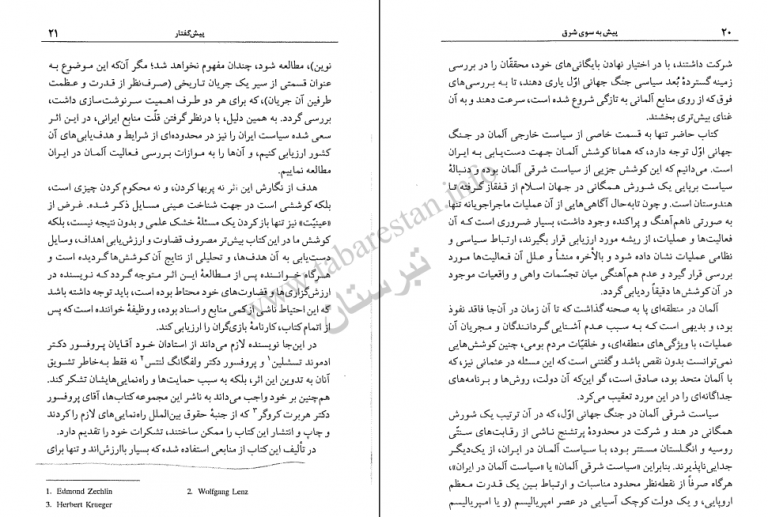 ۲۰
پیش به سوی شرق
شرکت داشتند، با در اختیار نهادن بایگانی‌های خود، محققّان را در بررسی
زمینه گسترده بُعد سیاسی جنگ جهانی اوّل یاری دهند، تا به بررسی‌های
فوق که از روی منابع آلمانی به تازگی شروع شده است، سرعت دهند و به آن
غنای بیش‌تری بخشند.
کتاب حاضر تنها به قسمت خاصی از سیاست خارجی آلمان در جنگ
جهانی اوّل توجه دارد، که همانا کوشش آلمان جهت دست‌یابی به ایران
است. می‌دانیم که این کوشش جزیی از سیاست شرقی آلمان بوده و دنبالهٔ
سیاست برپایی یک شورش همگانی در جهان اسلام از قفقاز گرفته تا
هندوستان است. و چون تابه‌حال آگاهی‌هایی از آن عملیات ماجراجویانه تنها
به صورتی ناهم‌آهنگ و پراکنده وجود داشت، بسیار ضروری است که آن
فعالیت‌ها و عملیات، از ریشه مورد ارزیابی قرار بگیرند، ارتباط سیاسی و
نظامی عملیات نشان داده شود و بالأخره منشأ و علل آن فعالیت‌ها مورد
بررسی قرار گیرد و عدم هم‌آهنگی میان تجسّمات واهی و واقعیات موجود
در آن کوشش‌ها دقیقاً ردیابی گردد.
آلمان در منطقه‌ای پا به صحنه گذاشت که تا آن زمان در آن‌جا فاقد نفوذ
بود، و بدیهی است که به سبب عدم آشنایی گردانندگان و مجریان آن
عملیات، با ویژگی‌های منطقه‌ای، و خلقیّات مردم بومی، چنین کوشش‌هایی
نمی‌توانست بدون نقص باشد و گفتنی است که این مسئله در عثمانی نیز، که
با آلمان متحد بود، صادق است، گو این‌که آن دولت، روش‌ها و برنامه‌های
جداگانه‌ای را در این مورد تعقیب می‌کرد.
سیاست شرقی آلمان در جنگ جهانی اوّل، که در آن ترتیب یک شورش
همگانی در هند و شرکت در محدودهٔ پرتشنج ناشی از رقابت‌های سنتّی
روسیه و انگلستان مستتر بود، با سیاست آلمان در ایران، از یک‌دیگر
جدایی‌ناپذیرند. بنابراین «سیاست شرقی آلمان» یا «سیاست آلمان در ایران»،
هرگاه صرفاً از نقطه‌نظر محدود مناسبات و ارتباط بین یک قدرت معظم
اروپایی، و یک دولت کوچک آسیایی در عصر امپریالیسم (و یا امپریالیسم
پیش‌گفتار
۲۱
نوین)، مطالعه شود، چندان مفهوم نخواهد شد؛ مگر آن‌که این موضوع به
عنوان قسمتی از سیر یک جریان تاریخی (صرف‌نظر از قدرت و عظمت
طرفین آن جریان)، که برای هر دو طرف اهمیت سرنوشت‌سازی داشت،
بررسی گردد. به همین دلیل، با درنظر گرفتن قلّت منابع ایرانی، در این اثر
سعی شده سیاست ایران را نیز در محدوده‌ای از شرایط و هدف‌یابی‌های آن
کشور ارزیابی کنیم، و آن‌ها را به موازات بررسی فعالیت آلمان در ایران
مطالعه نماییم.
هدف از نگارش این اثر نه پربها کردن، و نه محکوم کردن چیزی است،
بلکه کوششی است در جهت شناخت عینی مسایل ذکر شده. غرض از
«عینیّت» نیز تنها باز کردن یک مسئلهٔ خشک علمی و بدون نتیجه نیست، بلکه
کوشش ما در این کتاب بیش‌تر مصروف قضاوت و ارزش‌یابی اهداف، وسایل
دست‌یابی به آن هدف‌ها، و تحلیلی از نتایج آن کوشش‌ها گردیده است و
هرگاه خواننده پس از مطالعهٔ این اثر متوجه گردد که نویسنده در
ارزش‌گزاری‌ها و قضاوت‌های خود محتاط بوده است، باید توجه داشته باشد
که این احتیاط ناشی از کمی منابع و اسناد بوده، و وظیفهٔ خواننده است که پس
از اتمام کتاب، کارنامهٔ بازی‌گران را ارزیابی کند.
در این‌جا نویسنده لازم می‌داند از استادان خود آقایان پروفسور دکتر
ادموند تسشلین۱ و پروفسور دکتر ولفگانگ لنتس۲ نه فقط به‌خاطر تشویق
آنان به تدوین این اثر، بلکه به سبب حمایت‌ها و راه‌نمایی‌هایشان تشکر کند.
هم‌چنین بر خود واجب می‌داند به ناشر این مجموعه کتاب‌ها، آقای پروفسور
دکتر هربرت کروگر۳ که از جنبهٔ حقوق بین‌الملل راه‌نمایی‌های لازم را کردند
و چاپ و انتشار این کتاب را ممکن ساختند، تشکرات خود را تقدیم دارد.
در تألیف این کتاب از منابعی استفاده شده که بسیار باارزش‌اند و تنها برای
1. Edmond Zechlin 2. Wolfgang Lenz
3. Herbert Krueger
www.tabarestan.info
تبرستان